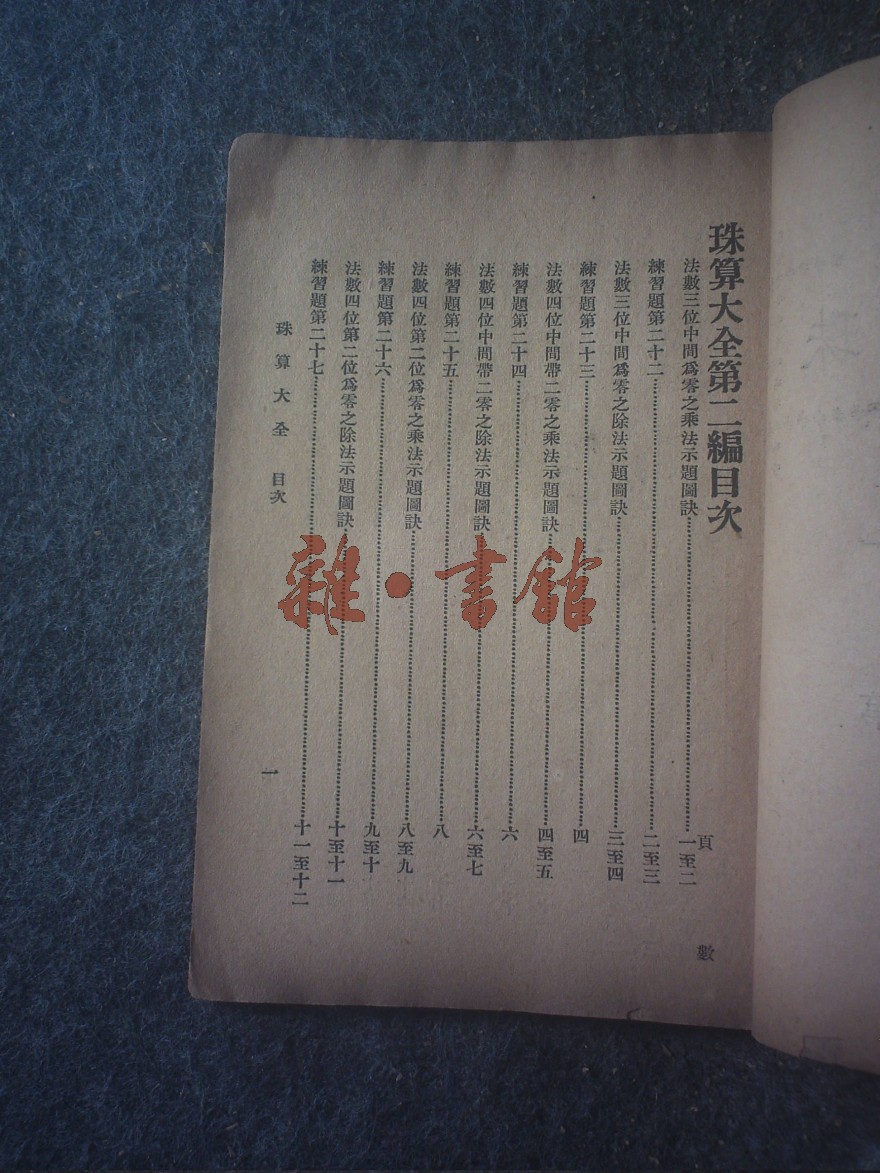 珠算大全第二編目次
頁數
法數三位中間爲零之乘法示題圖訣……一至二
練習題第二十二……二至三
法數三位中間爲零之除法示題圖訣……三至四
練習題第二十三……四
法數四位中間帶二零之乘法示題圖訣……四至五
練習題第二十四……六
法數四位中間帶二零之除法示題圖訣……六至七
練習題第二十五……八
法數四位第二位爲零之乘法示題圖訣……八至九
練習題第二十六……九至十
法數四位第二位爲零之除法示題圖訣……十至十一
練習題第二十七……十一至十二
珠算大全 目次
一
雜·書館